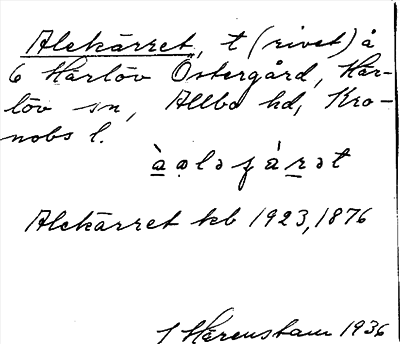 Alekärret, t (rivet) å
6 Härlöv Östergård, Här-
löv sn, Allbo hd, Kro-
nobs l.
Alekärret kb 1923, 1876
Härenstam 1936